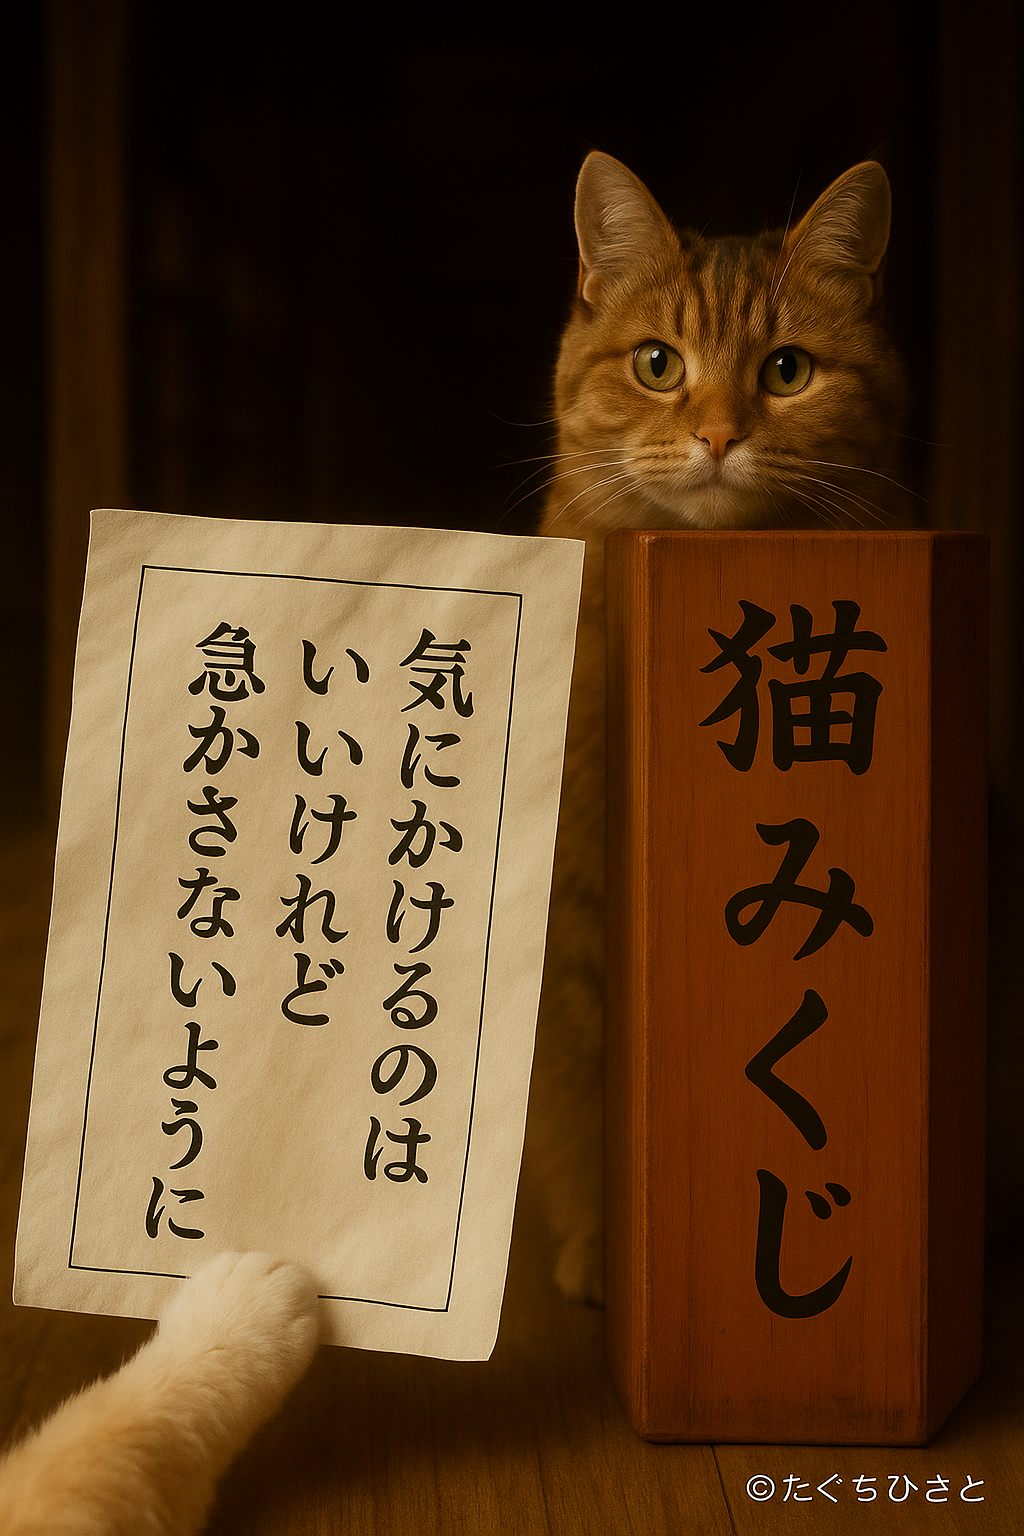 気にかけるのは
いいけれど
急かさないように
猫みくじ
©たぐちひさと